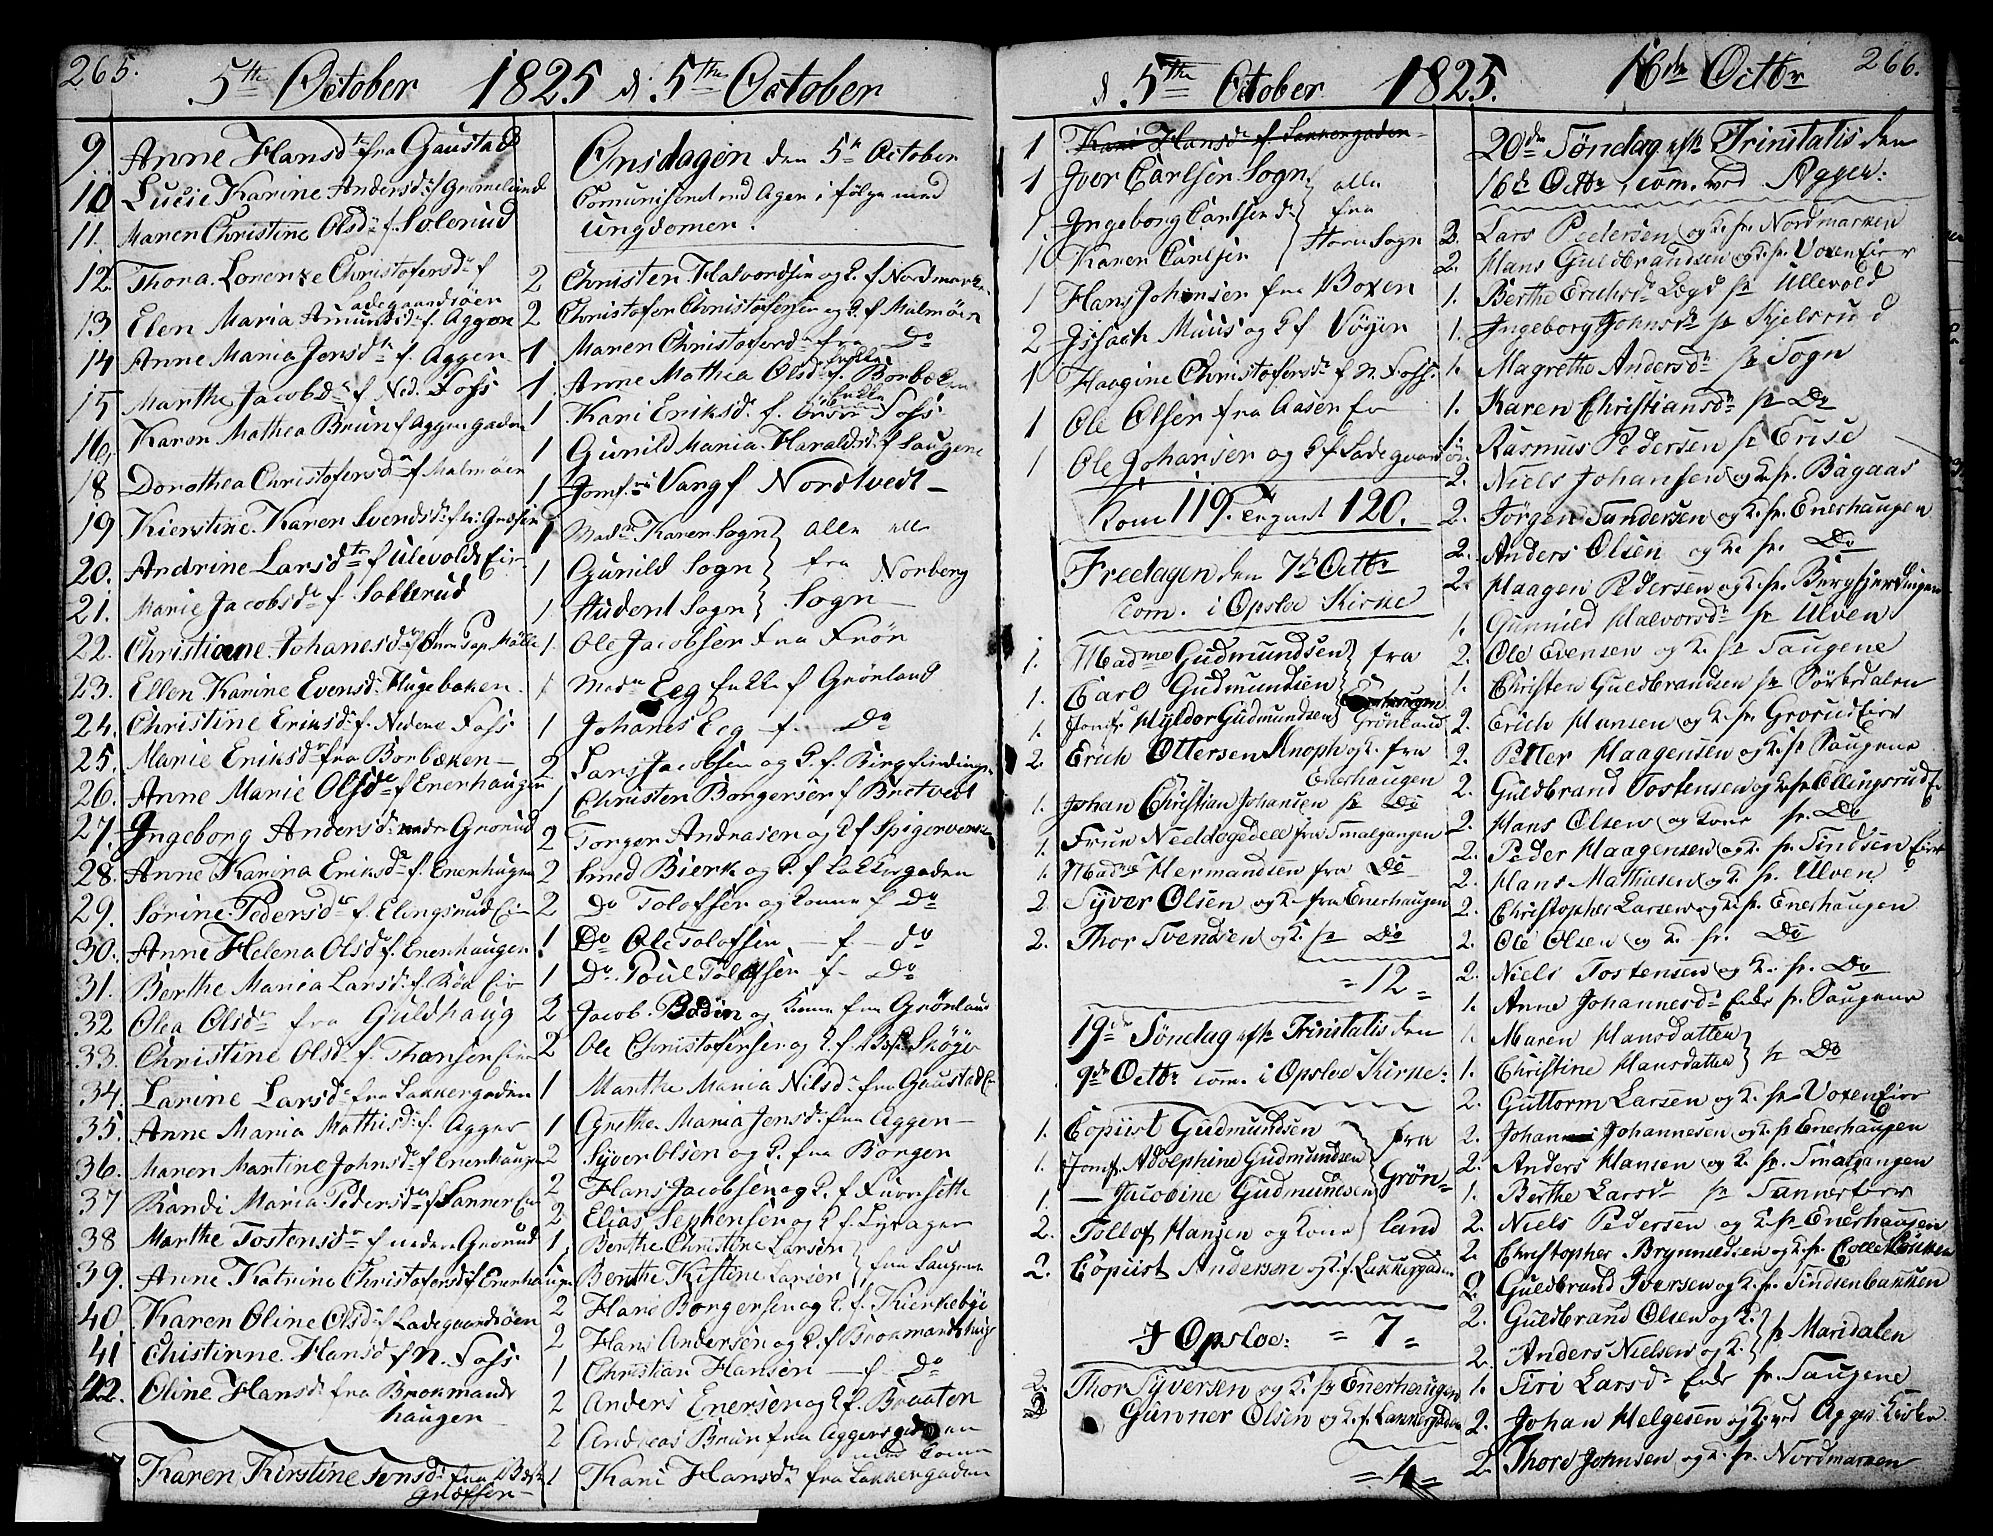 265.
5th October 1825 d. 5th October
9. Anne Hansd. fra Gaustad
10 Lucie Karine Andersd. f Grimelund
11. Maren Christine Olsd. f. Solerud
12. Thora Lorenze Christofersd. f
Ladegaardsöen
13. Elen Maria Amundsd. f. Aggen
14 Anne Maria Jensd. f. Aggen
15 Marthe Jacobsd. f Ned. Foss
16, Karen Mathea Brun f Aggersgaden
18 Dorothea Christofersd. f Malmöen
19 Kierstine Karen Svendsd.
20. Andrine Larsd. f Ulevolds Eir
21. Marie Jacobsd. f Sollerud
22. Christiane Johanesd.
23. Ellen Karine Evensd. Hugebaken
24. Christine Eriksd. f. Nedene Foss
25. Marie Eriksd. fra Borbæken
26. Anne Marie Olsd. f Enerhaugen
27. Ingeborg Andersd. nedre Grorud
28. Anne Karina Eriksd. f. Enerhaugen
29. Sörine Pedersd. f. Elengsrud Eir
30. Anne Helena Olsd. f. Enerhaugen
31. Berthe Maria Larsd. f. Röa Eir
32 Olea Olsd. fra Guldhaug
33. Christine Olsd. f. Thonsen Eier
34. Larine Larsd. fra Lakkergaden
35. Anne Maria Mathisd. f. Agger
36. Maren Martine Johnsd. f Enerhaugen
37 Randi Maria Pedersd. f Tanner Eir
38 Marthe Tostensd. f neden Grorud
39. Anne Katrine Christofersd. f Enerhaugen
40 Karen Oline Olsd. f Ladegaardsöen
41 Chistinne Hansd. f N. Foss
42. Oline Hansd. fra Brokmands
haugen
Karen Kirstine Jensd. fra
Onsdagen den 5te October
Comuniseret ved Ager i fölge med
Ungdomen.
2 Christen Halvordsen og K. f Nordmarken
2 Christofer Christofersen og K. f Malmöen
1 Maren Christofersd. fra Do
1. Anne Mathea Olsd. f. Borbæken
1 Kari Eriksd. f. Foss
1 Gunild Maria Haraldsd. f Saugene
1 Jomf. Vang f Nordtvedt
1 Madm Karen Sogn } alle
1 Gunild Sogn } fra Norberg
1. Student Sogn } Sogn
1. Ole Jacobsen fra Frön
1 Madm Eeg f Grönland
1 Johanes Eeg f. Do
2 Lars Jacobsen og K. f.
1 Christen Borgersen f Bretvedt
2 Torger Andrasen og K f Spigerverket
2 Smed Bierk og K. f Lakkergaden
2 Do Tolofsen og Konne f Do
1 Do Ole Tolofsen f. do
1 Do Poul Tolofsen f. Do
2 Jacob Bodin og Konne fra Grönland
2 Ole Christofersen og K f Sköyen
1 Marthe Maria Nilsd. fra Gaustad Eir
1 Grethe Maria Jensd. fra Aggen
2 Syver Olsen og K. fra Borgen
2 Hans Jacobsen og K. f Furusette
2. Elias Sephensen og K f.
1, Berthe Christine Larsen } fra Saugene
1. Berthe Kistine Larsen }
2 Hans Borgersen og K. f. Kierkebye
2 Hans Andersen og K f Brokmandshaug
1 Christian Hansen f. Do
2 Anders Enersen og K f. Braaten
2 Andreas Brun fra Aggersgaden
med Conne
1 Kari Hansd. fra Lakkergaden
d. 5th October 1825. 16de Octbr 266.
1 Kari Hansd. f Lakkergaden
1 Iver Carlsen Sogn } alle
1. Ingeborg Carlsend. } fra
1 Karen Carlsen } Store Sogn
1 Hans Johansen fra Voxen
2 Isach Muus og K f Vöyen
1 Haagine Christofersd. f N. Foss.
1 Ole Olsen fra Aasen Eir
1 Ole Johansen og K f Ladegaardsöe
Kom 119. Tegnet 120.
Fredagen den 7de Octbr
Com. i Opsloe Kirke
1. Madme Gudmundsen } fra
1. Carl Gudmundsen }
1. Jomfr Hyldor Gudmundsen } Grönland
2 Erich Ottersen Knoph og K. fra
Enerhaugen
1. Johan Christian Johansen fr Do
1. Fruu Neeldegedell fra Smalgangen
1. Madme Hermandsen fra Do
2. Syver Olsen og K. fra Enerhaugen
2. Thor Svendsen og K. fr Do
= 12 =
19de Söndag efter Trinitatis den
9de Octbr com. i Opsloe Kirke:
1. Copiist Gudmundsen } fra
1. Jomf. Adolphine Gudmundsen } Grön=
1. — Jacobine Gudmundsen } land
2. Tollof Hansen og Kone }
2. Copiist Andersen og K f. Lakkergaden
I Opsloe: = 7 =
2. Thor Syversen og K. fr Enerhaugen
2 Gunner Olsen og K. f. Lakkergaden
= 4 =
20de Söndag efter Trinitatis den
16de Octbr com. ved Agger:
2. Lars Pedersen og K. fr. Nordmarken
2. Hans Guldbrandsen og K. fr. Voxen Eier
1. Berthe Erichsd. Lægd fr Ullevold
1. Ingeborg Johnsd. fr Kjelsrud
1. Magrethe Andersd. fr Sogn
1. Karen Christiansd. fr Do
1. Rasmus Pedersen fr Ense
2. Niels Johansen og K. fr. Bagaas
2. Jörgen Sandersen og K. fr. Enerhaugen
2. Anders Olsen og K. fr. Do
2. Haagen Pedersen og K. fr. Bergfjerdingen
1. Gunnild Halvorsd. fr Ulven
2. Ole Evensen og K. fr Saugene
1. Christen Guldbrandsen fr Sörkedalen
2. Erich Hansen og K. fr. Grorud Eier
2. Petter Haagensen og K. fr Saugene
2. Guldbrand Tostensen og K. fr Ellingsrud E
2. Hans Olsen og Kone fr. Do
2. Peder Haagensen og K. fr. Tindsen Eier
2. Hans Mathiesen og K. fr. Ulven
2. Christopher Larsen og K. fr. Enerhaugen
2. Ole Olsen og K. fr. Do
2. Niels Tostensen og K. fr. Do
1. Anne Johannesd. Enke fr. Saugene
1. Maren Hansdatten }
1. Christine Hansdatten } fr Do
2. Guttorm Larsen og K. fr. Voxen Eier
2. Johan Johannesen og K. fr Enerhaugen
2. Anders Hansen og K. fr. Smalgangen
1. Berthe Larsd. fr Tanner Eier
2. Niels Pedersen og K. fr Enerhaugen
2. Christopher Brynnildsen og K. fr. Collelökken
2. Guldbrand Iversen og K. fr. Tindsenbakken
2. Guldbrand Olsen og K. } fr Maridalen
2. Anders Nielsen og K. }
1. Siri Larsd. Enke fr. Saugene
2. Johan Helgesen og K. ved Agger Kirke
2. Thore Johnsen og K. fr. Nordmarken